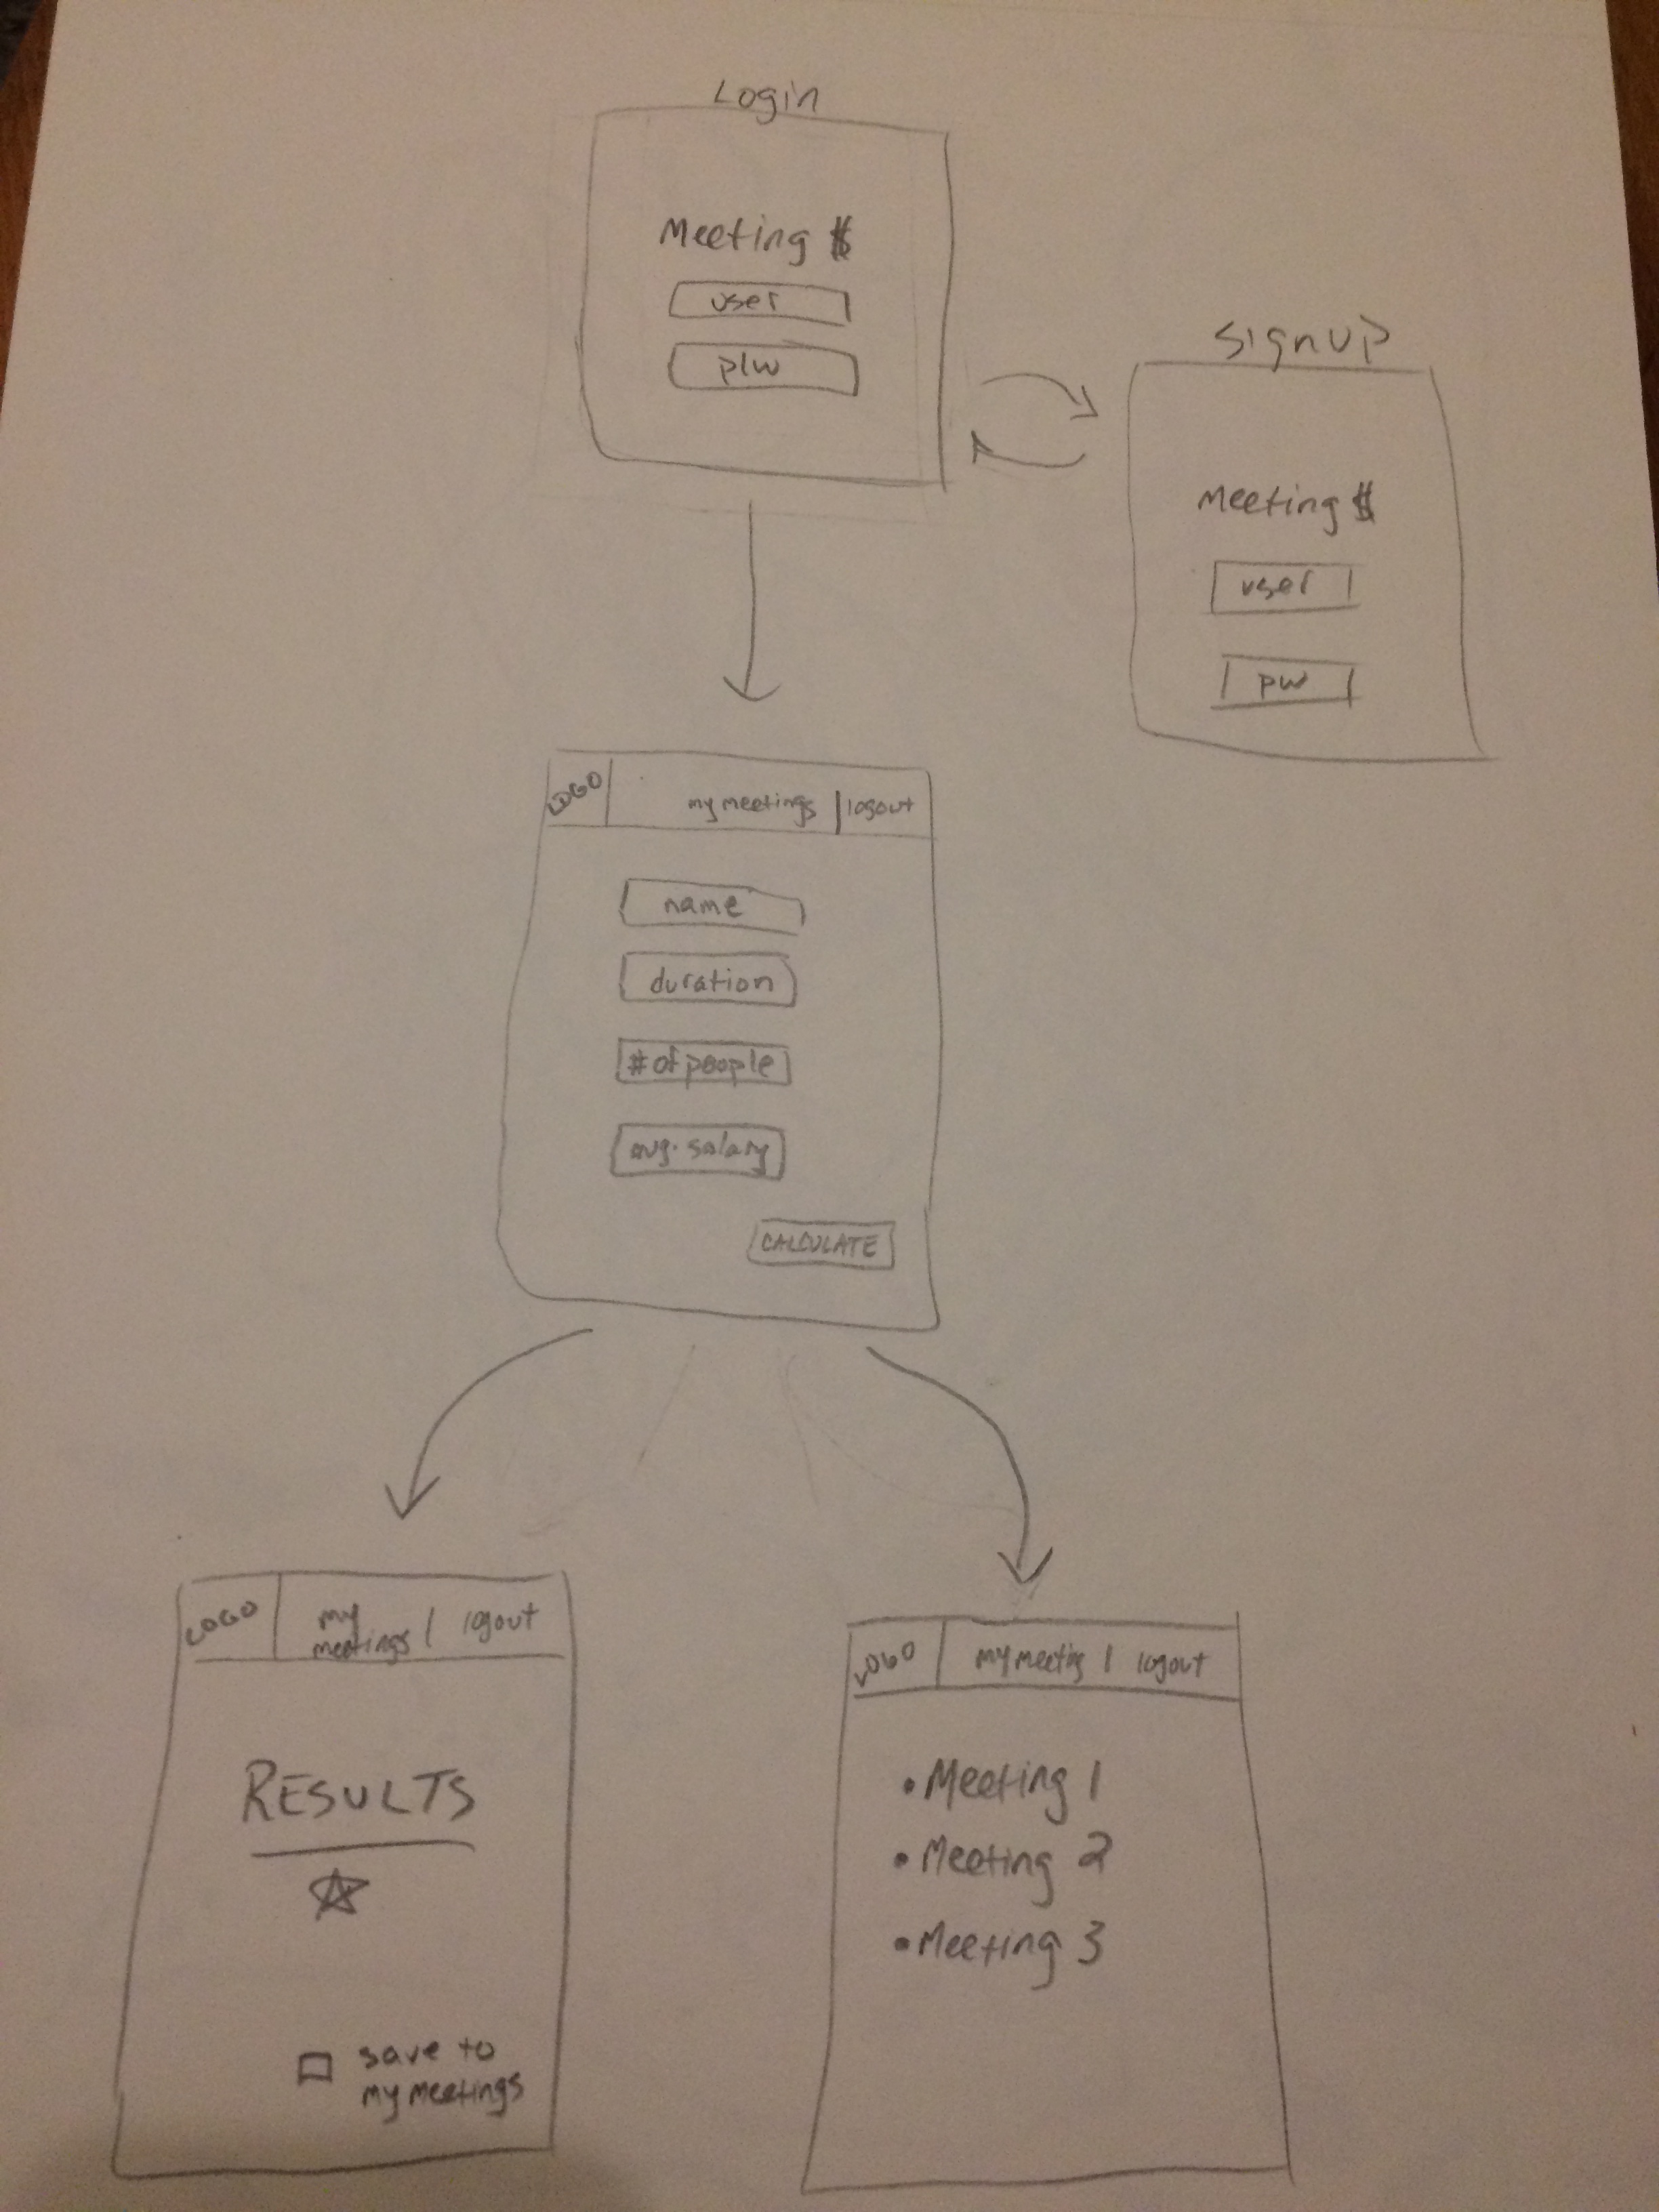 Login
Meeting $
user
p/w
Signup
Meeting $
user
pw
LOGO my meetings | logout
name
duration
# of people
avg. salary
CALCULATE
LOGO my meetings | logout
RESULTS
save to
my meetings
LOGO my meeting | logout
• Meeting 1
• Meeting 2
• Meeting 3